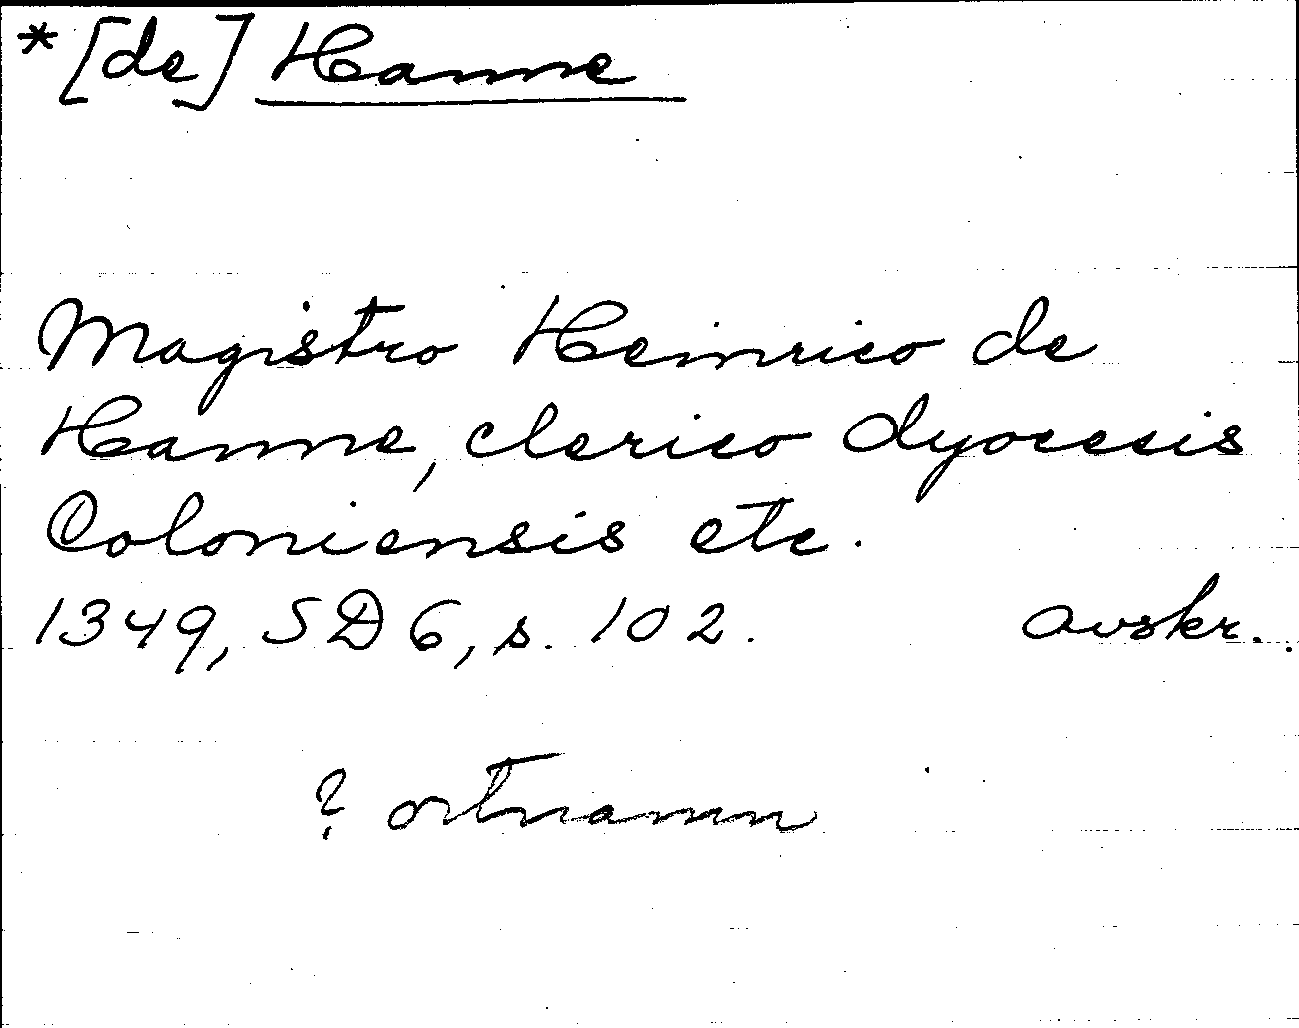 *[de] Hanne
Magistro Heinrico de
Hanne, clerico dyocesis
Coloniensis etc.
1349, SD 6, s. 102. avskr.
? ortnamn